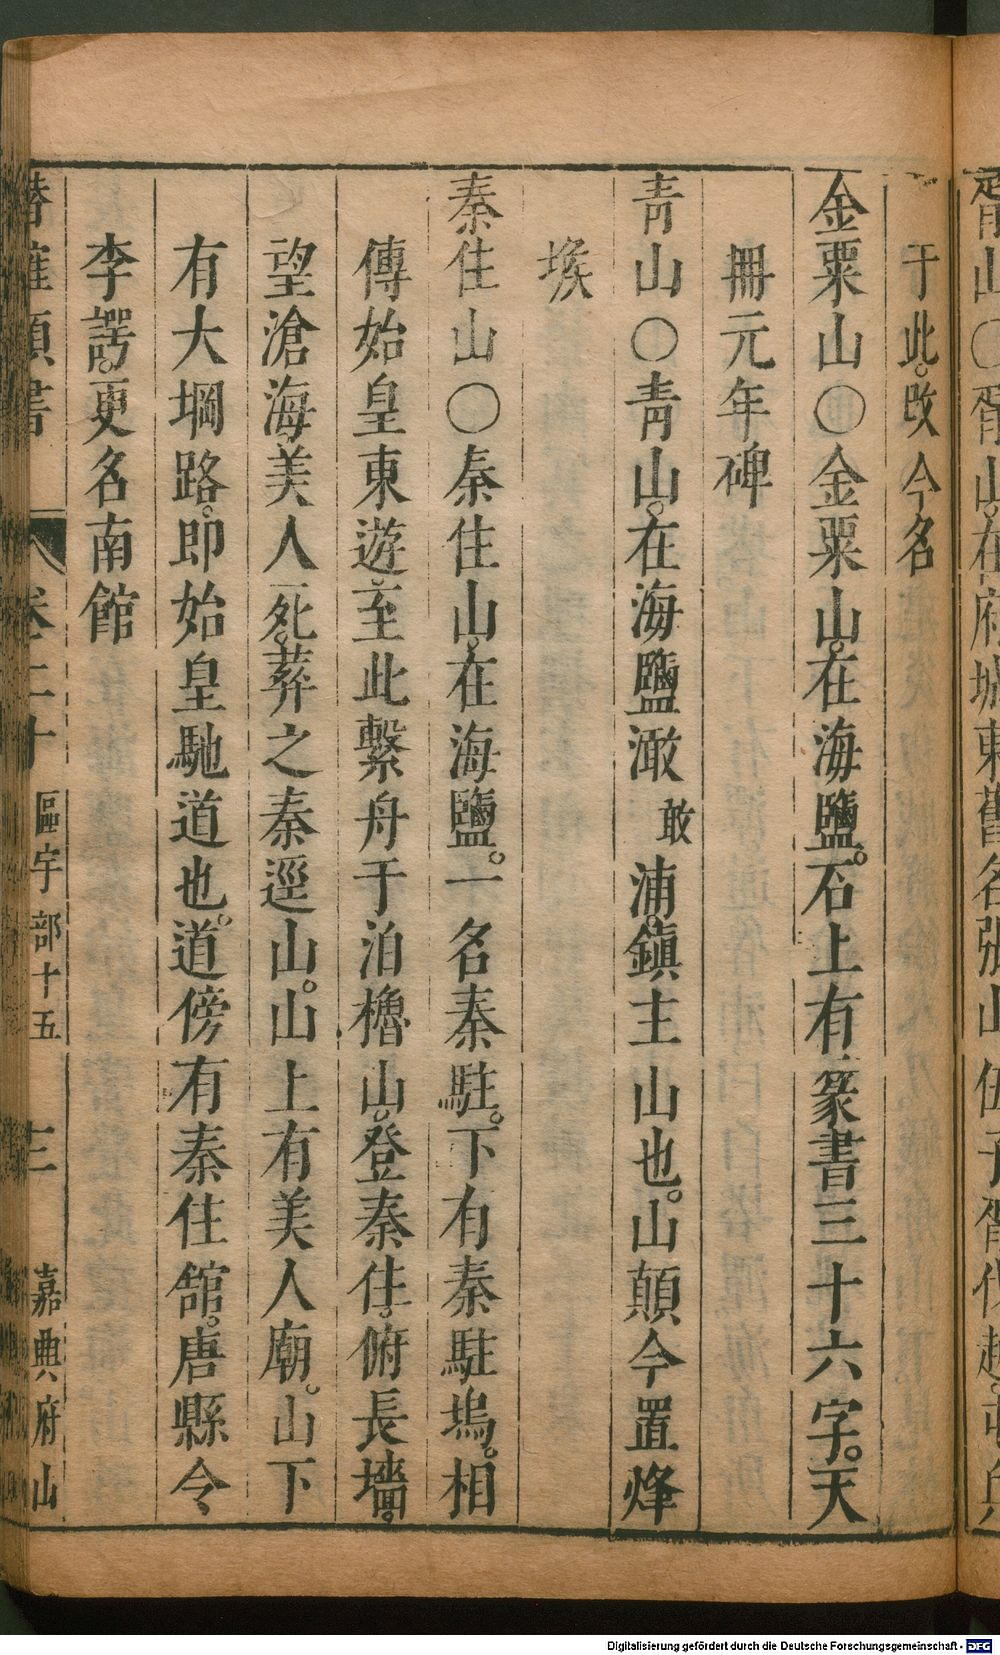 胥山○胥山。在府城東舊名張山伍子胥伐越。屯兵
于此。改今名
金粟山○金粟山。在海鹽。石上有篆書三十六字。天
冊元年碑
青山○青山。在海鹽澉敢浦。鎮主山也。山顛今置烽
堠
秦住山○秦住山。在海鹽。一名秦駐。下有秦駐塢。相
傳始皇東遊至此繫舟于泊櫓山。登秦住。俯長墻。
望滄海美人死。葬之秦逕山。山上有美人廟。山下
有大堈路。即始皇馳道也。道傍有秦住舘。唐縣令
李諤。更名南館
潛確類書 卷二十 區宇部十五 三 嘉興府山
Digitalisierung gefördert durch die Deutsche Forschungsgemeinschaft - DFG